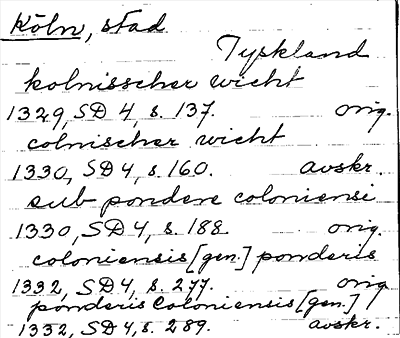 Köln, stad
Tyskland
kolnisscher wicht
1329, SD 4, s. 137. orig.
colnischer wicht
1330, SD 4, s. 160. avskr.
sub pondere coloniensi
1330, SD 4, s. 188. orig.
coloniensis [gen.] ponderis
1332, SD 4, s. 277. orig
ponderis Coloniensis [gen.]
1332, SD 4, s. 289. avskr.